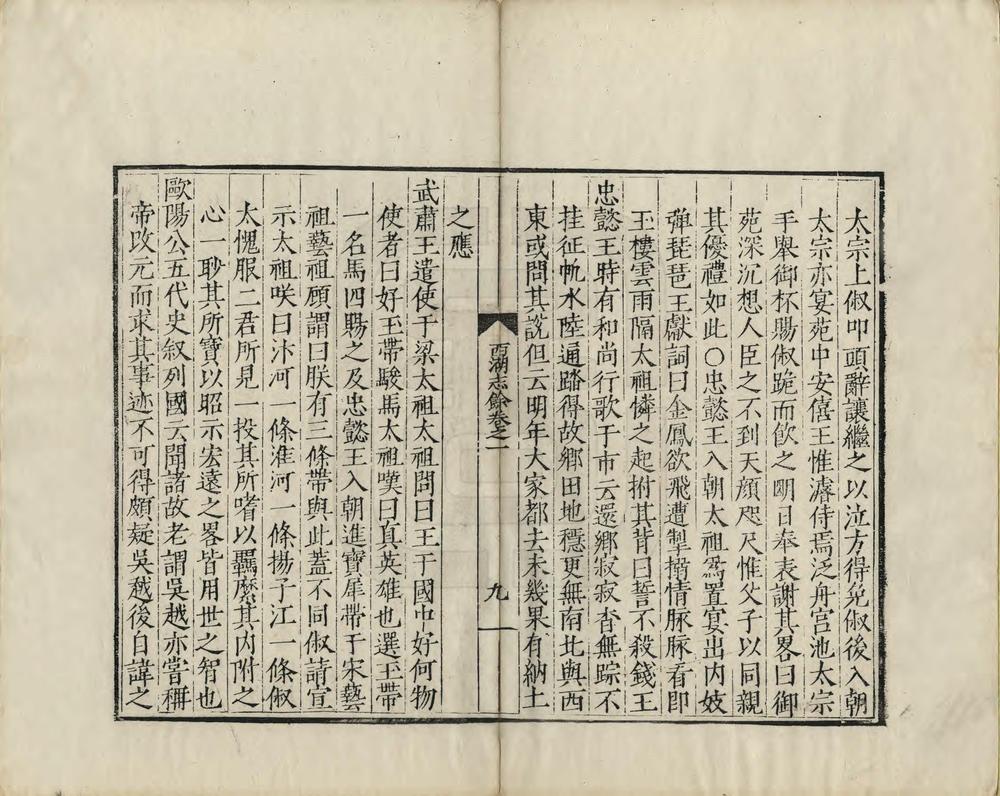 太宗上俶叩頭辭讓繼之以泣方得免俶後入朝
太宗亦宴苑中安僖王惟濬侍焉泛舟宫池太宗
手舉御杯賜俶跪而飲之明日奉表謝其畧曰御
苑深沉想人臣之不到天顔咫尺惟父子以同親
其優禮如此〇忠懿王入朝太祖爲置宴出内妓
彈琵琶王獻詞曰金鳳欲飛遭掣搦情脉脉看即
玉樓雲雨隔太祖憐之起拊其背曰誓不殺錢王
忠懿王時有和尚行歌于市云還鄉寂寂杳無踪不
挂征帆水陸通踏得故鄉田地穩更無南北與西
東或問其說但云明年大家都去未幾果有納土
西湖志餘卷之一
九
之應
武肅王遣使于梁太祖太祖問曰王于國中好何物
使者曰好玉帶駿馬太祖嘆曰真英雄也選玉帶
一名馬四賜之及忠懿王入朝進寶犀帶于宋藝
祖藝祖顧謂曰朕有三條帶與此蓋不同俶請宣
示太祖咲曰汴河一條淮河一條揚子江一條俶
太愧服二君所見一投其所嗜以羈縻其内附之
心一眇其所寶以昭示宏遠之畧皆用世之智也
歐陽公五代史叙列國云聞諸故老謂吳越亦嘗稱
帝改元而求其事迹不可得頗疑吳越後自諱之